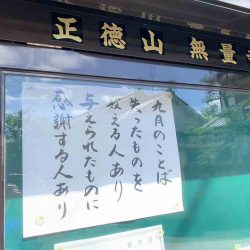 正徳山 無量
九月のことば
失ったものを
数える人あり
与えられたものに
感謝する人あり